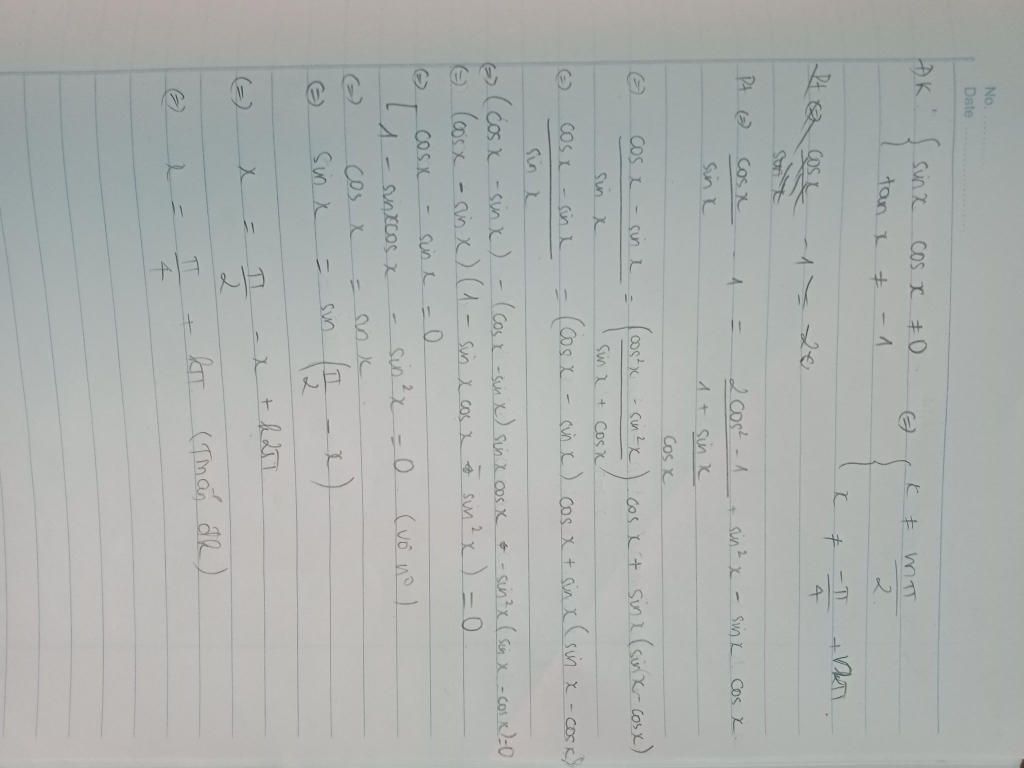 No.
Date
ĐK: { sin x cos x ≠ 0 ⇔ { x ≠ mπ/2
tan x ≠ -1 x ≠ -π/4 + kπ.
Pt ⇔ cosx/sinx - 1 = 2c
Pt ⇔ cosx/sinx - 1 = (2cos² - 1)/(1 + sinx/cosx) + sin²x - sinx cosx
⇔ (cosx - sinx)/sinx = ((cos²x - sin²x)/(sinx + cosx)) cosx + sinx(sinx - cosx)
⇔ (cosx - sinx)/sinx = (cosx - sinx) cosx + sinx(sinx - cosx)
⇔ (cosx - sinx) - (cosx - sinx) sinx cosx - sin²x (sinx - cosx) = 0
⇔ (cosx - sinx)(1 - sinx cosx - sin²x) = 0
⇔ [ cosx - sinx = 0
1 - sinxcosx - sin²x = 0 (vô n⁰)
⇔ cosx = sinx
⇔ sinx = sin (π/2 - x)
⇔ x = π/2 - x + k2π
⇔ x = π/4 + kπ (Tmãn đk)